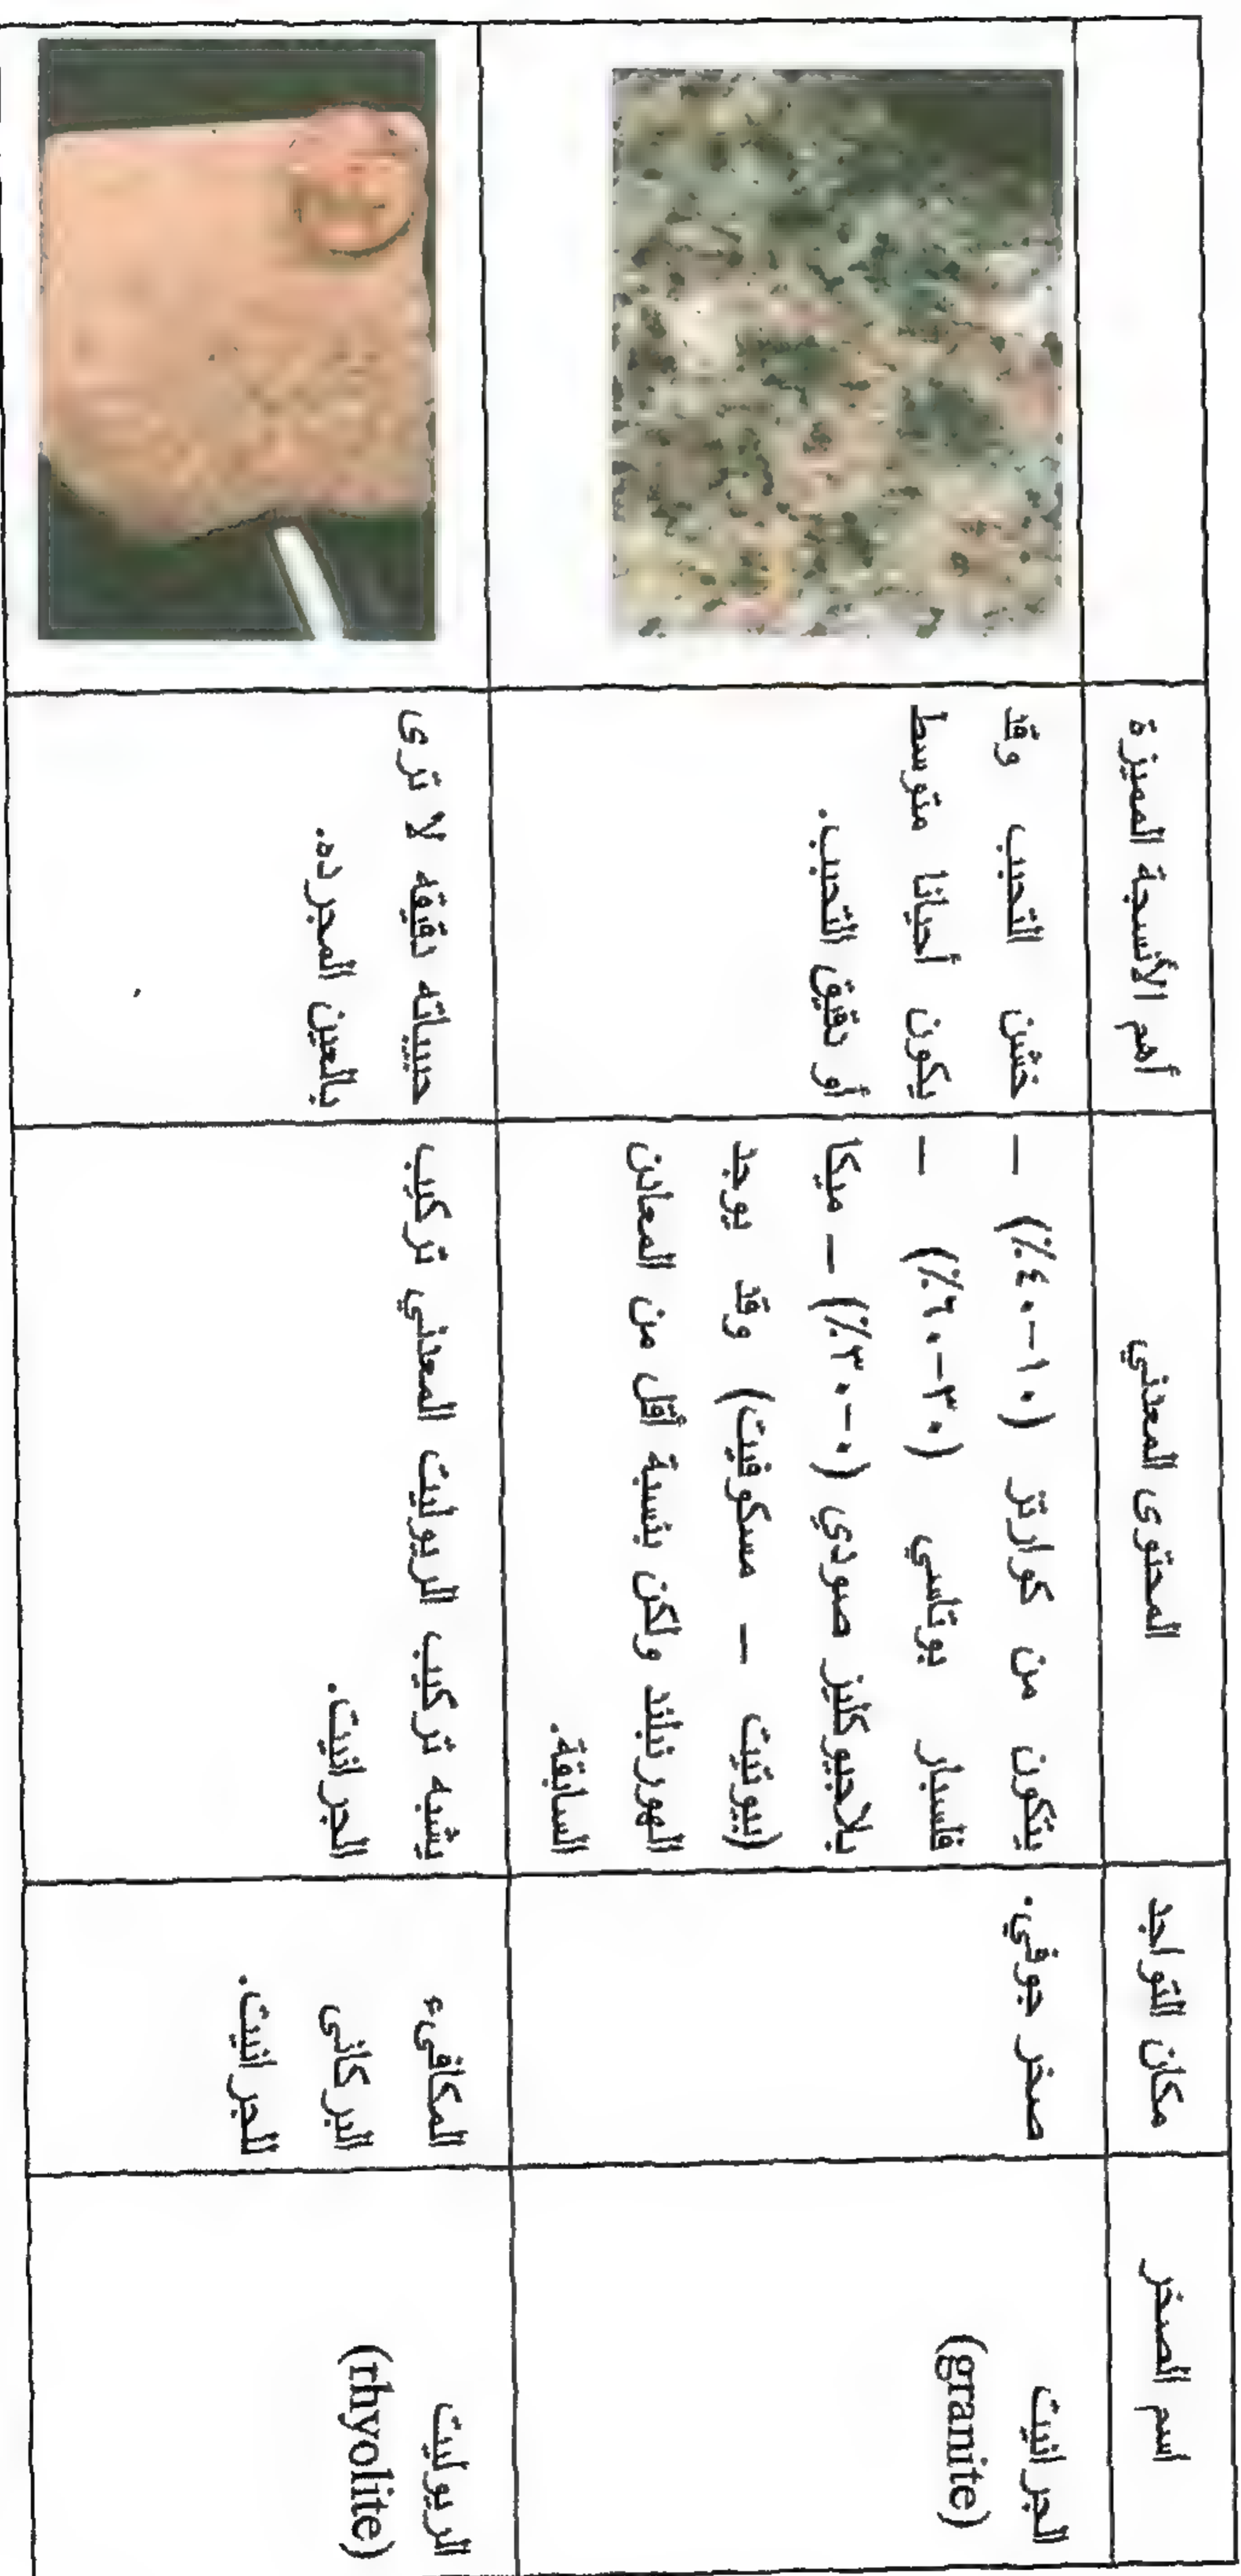 اسم الصخر
مكان التواجد
المحتوى المعدني
أهم الأنسجة المميزة
الجرانيت
(granite)
صخر جوفي.
يتكون من كوارتز (١٠-٤٠٪) –
فلسبار بوتاسي (٣٠-٦٠٪) –
بلاجيوكليز صودي (٠-٣٠٪) – ميكا
(بيوتيت – مسكوفيت) وقد يوجد
الهورنبلند ولكن بنسبة أقل من المعادن
السابقة.
خشن التحبب وقد
يكون أحيانا متوسط
أو دقيق التحبب.
الريوليت
(rhyolite)
المكافىء
البركانى
للجرانيت.
يشبه تركيب الريوليت المعدني تركيب
الجرانيت.
حبيباته دقيقه لا ترى
بالعين المجرده.